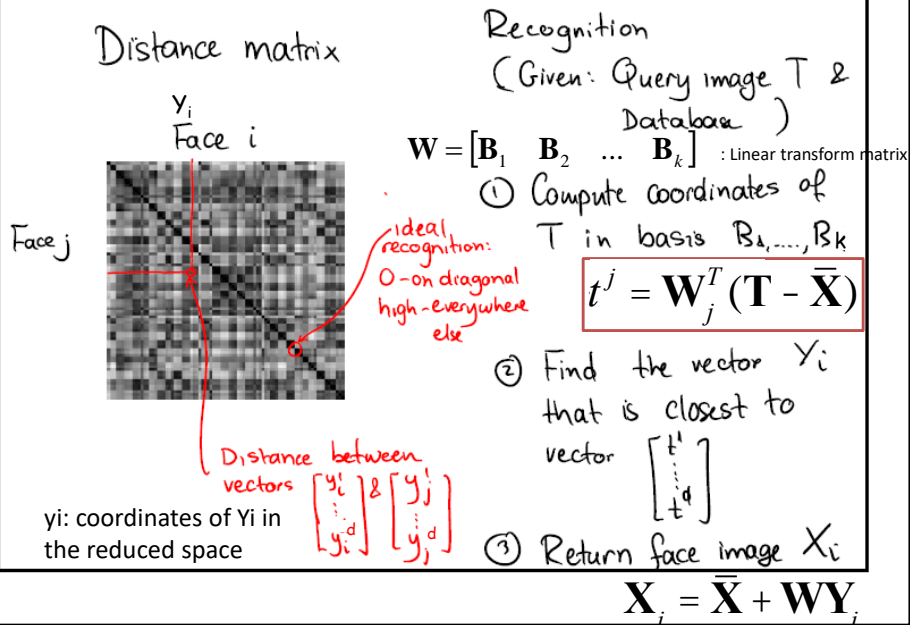 Distance matrix
Y_i
Face i
Face j
ideal
recognition:
0-on diagonal
high-everywhere
else
Distance between
vectors [y_i^1 ⋮ y_i^d] & [y_j^1 ⋮ y_j^d]
yi: coordinates of Yi in
the reduced space
Recognition
(Given: Query image T &
Database )
W = [B_1 B_2 ... B_k] : Linear transform matrix
① Compute coordinates of
T in basis B_1,....,B_K
t^j = W_j^T (T - X̄)
② Find the vector Y_i
that is closest to
vector [t^1 ⋮ t^d]
③ Return face image X_i
X_i = X̄ + WY_i